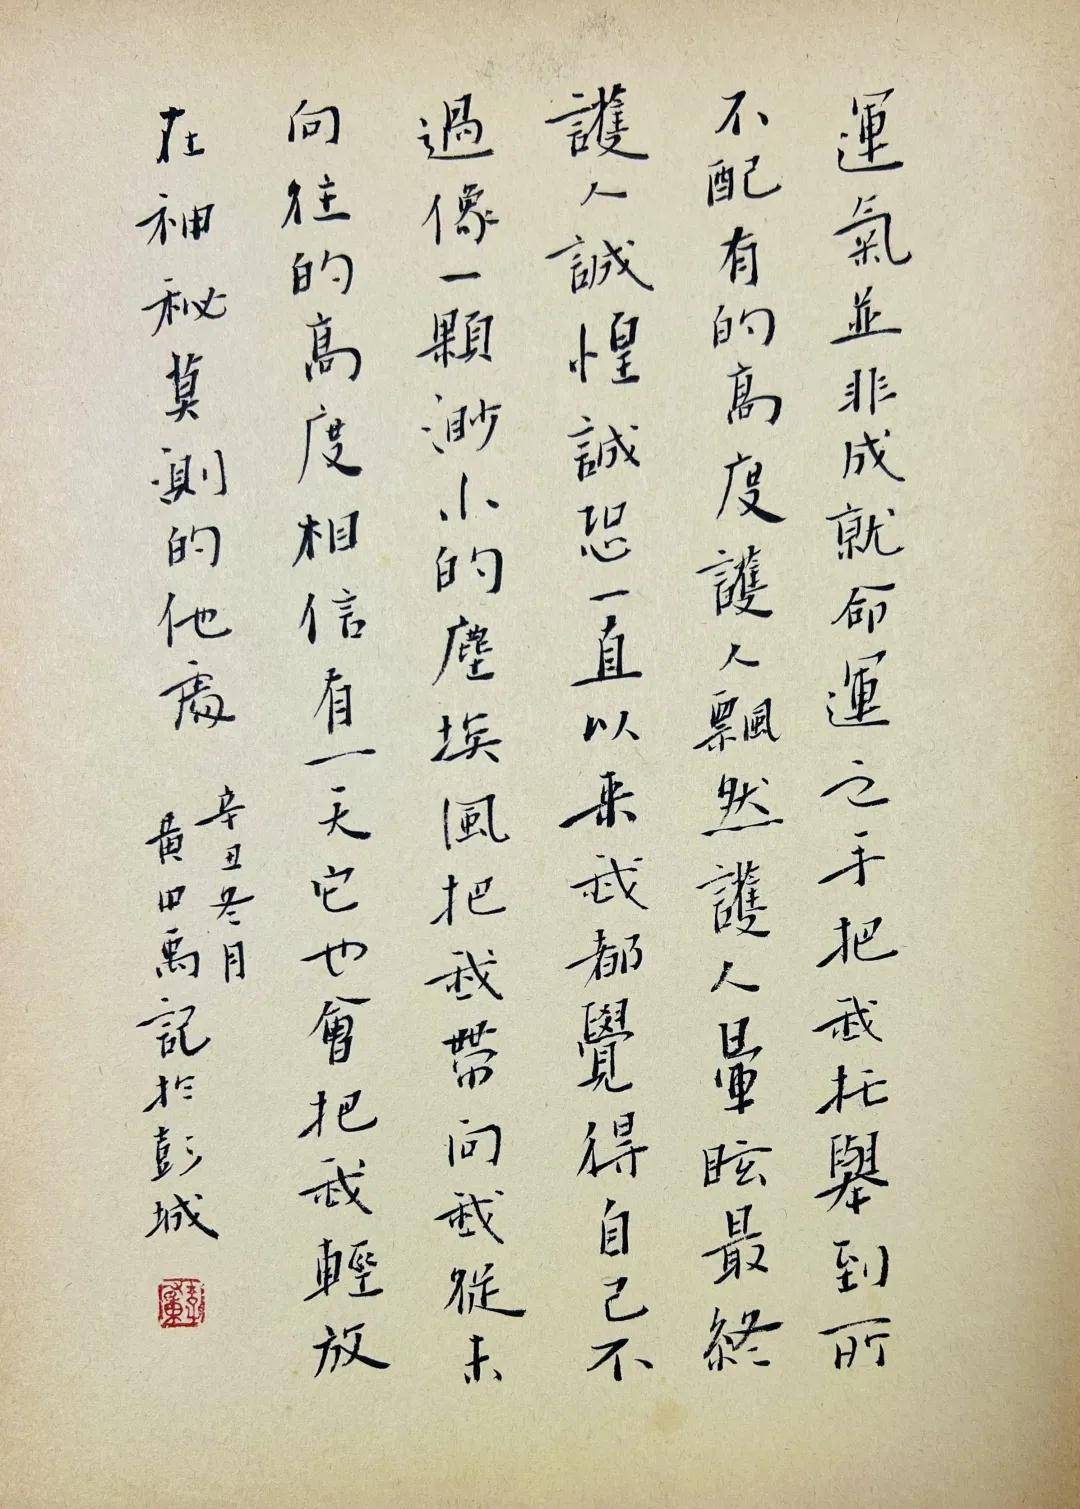 運氣並非成就命運之手把我托舉到所
不配有的高度護人飄然護人暈眩最終
護人誠惶誠恐一直以来我都覺得自己不
過像一顆渺小的塵埃風把我帶向我從未
向往的高度相信有一天它也會把我輕放
在神秘莫測的他處
辛丑冬月
黄田禹記於彭城